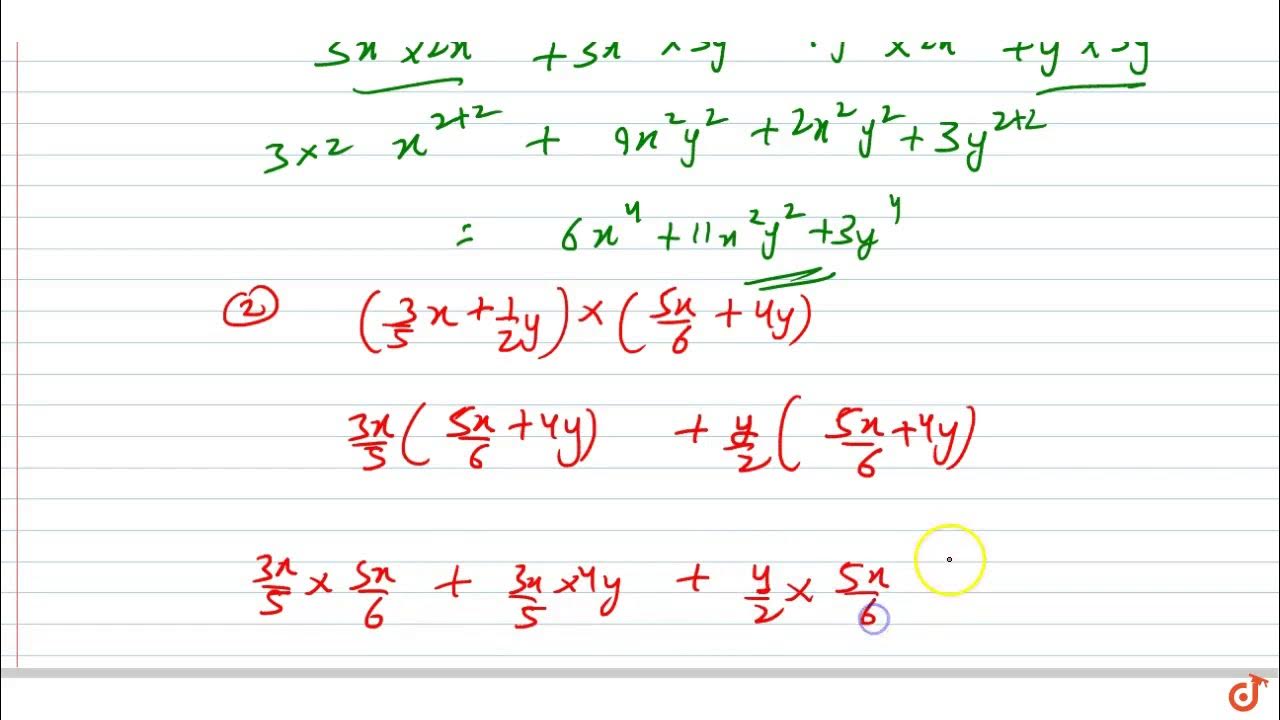 3x² × 2x² + 3x² × 3y² + y² × 2x² + y² × 3y²
3×2 x^2+2 + 9x²y² + 2x²y² + 3y^2+2
= 6x⁴ + 11x²y² + 3y⁴
② (3/5 x + 1/2 y) × (5x/6 + 4y)
3x/5 (5x/6 + 4y) + y/2 (5x/6 + 4y)
3x/5 × 5x/6 + 3x/5 × 4y + y/2 × 5x/6